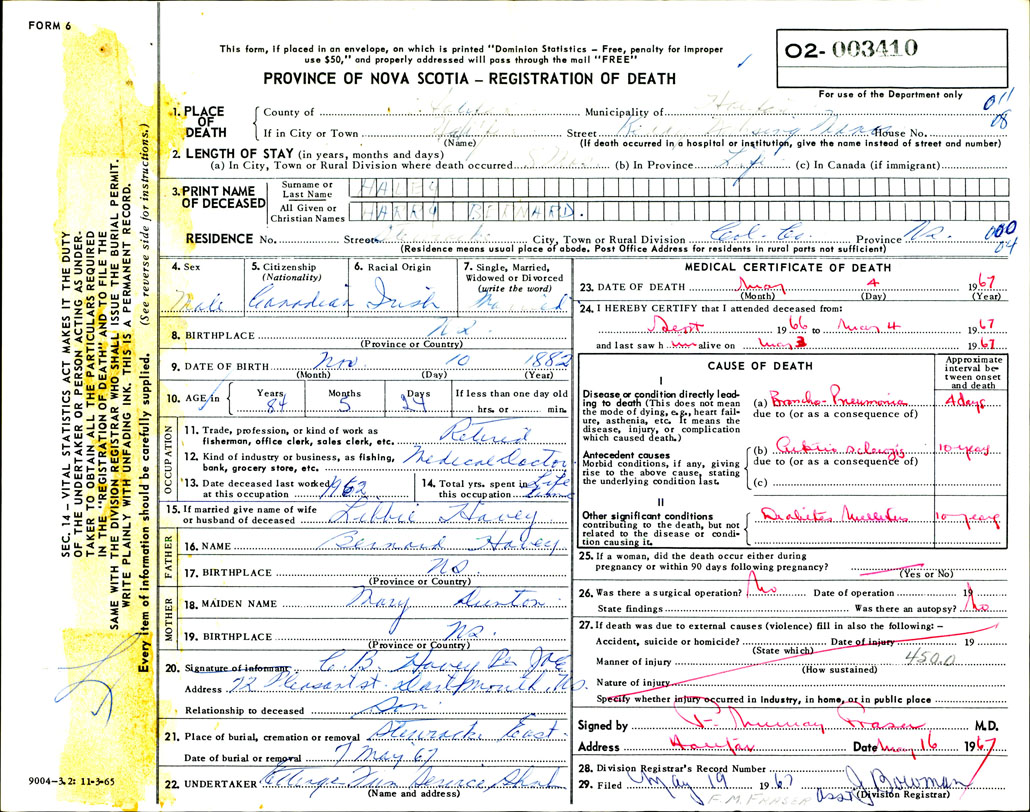 FORM 6
This form, if placed in an envelope, on which is printed "Dominion Statistics – Free, penalty for improper
use $50," and properly addressed will pass through the mail "FREE"
PROVINCE OF NOVA SCOTIA – REGISTRATION OF DEATH
O2- 003410
For use of the Department only
011
08
1. PLACE OF DEATH
County of Halifax Municipality of Halifax
If in City or Town Halifax Street Nursing House No.
(Name) (If death occurred in a hospital or institution, give the name instead of street and number)
2. LENGTH OF STAY (in years, months and days)
(a) In City, Town or Rural Division where death occurred (b) In Province Life (c) In Canada (if immigrant)
3. PRINT NAME OF DECEASED
Surname or Last Name
All Given or Christian Names HARRY BERNARD.
RESIDENCE No. Street City, Town or Rural Division Col. Co. Province Ns. 000
04
(Residence means usual place of abode. Post Office Address for residents in rural parts not sufficient)
4. Sex Male
5. Citizenship (Nationality) Canadian
6. Racial Origin Irish
7. Single, Married, Widowed or Divorced (write the word)
8. BIRTHPLACE Ns.
(Province or Country)
9. DATE OF BIRTH Nov 10 1882
(Month) (Day) (Year)
10. AGE in Years 84 Months 5 Days 24 If less than one day old
hrs. or min.
OCCUPATION
11. Trade, profession, or kind of work as fisherman, office clerk, sales clerk, etc. Retired
12. Kind of industry or business, as fishing, bank, grocery store, etc. Medical Doctor
13. Date deceased last worked at this occupation 1962
14. Total yrs. spent in this occupation Life time
15. If married give name of wife or husband of deceased Libbie Havey
FATHER
16. NAME Bernard Havey
17. BIRTHPLACE Ns.
(Province or Country)
MOTHER
18. MAIDEN NAME Mary
19. BIRTHPLACE Ns.
(Province or Country)
20. Signature of informant C. B. Havey Per
Address 72 Pleasant st. Dartmouth, Ns.
Relationship to deceased Son
21. Place of burial, cremation or removal Stewiacke East
Date of burial or removal 7 May 67
22. UNDERTAKER
(Name and address)
MEDICAL CERTIFICATE OF DEATH
23. DATE OF DEATH May 4 1967
(Month) (Day) (Year)
24. I HEREBY CERTIFY that I attended deceased from:
Sept 1966 to May 4 1967
and last saw h im alive on May 3 1967
CAUSE OF DEATH
Approximate interval between onset and death
I
Disease or condition directly leading to death (This does not mean the mode of dying, e.g., heart failure, asthenia, etc. It means the disease, injury, or complication which caused death.)
(a) Broncho-Pneumonia 4 days
due to (or as a consequence of)
Antecedent causes
Morbid conditions, if any, giving rise to the above cause, stating the underlying condition last.
(b) Arterio sclerosis 10 years
due to (or as a consequence of)
(c)
II
Other significant conditions
contributing to the death, but not related to the disease or condition causing it.
Diabetes Mellitus 10 years
25. If a woman, did the death occur either during pregnancy or within 90 days following pregnancy?
(Yes or No)
26. Was there a surgical operation? No Date of operation 19
State findings Was there an autopsy? No
27. If death was due to external causes (violence) fill in also the following: –
Accident, suicide or homicide? Date of injury 19
(State which)
Manner of injury 450.0
(How sustained)
Nature of injury
Specify whether injury occurred in Industry, in home, or in public place
Signed by F. Murray Fraser M.D.
Address Halifax Date May 16 1967
28. Division Registrar's Record Number
29. Filed May 19 1967 J. Bowman
F. M. FRASER ass't (Division Registrar)
SEC. 14 – VITAL STATISTICS ACT MAKES IT THE DUTY
OF THE UNDERTAKER OR PERSON ACTING AS UNDER-
TAKER TO OBTAIN ALL THE PARTICULARS REQUIRED
IN THE "REGISTRATION OF DEATH" AND TO FILE THE
SAME WITH THE DIVISION REGISTRAR WHO SHALL ISSUE THE BURIAL PERMIT.
WRITE PLAINLY WITH UNFADING INK. THIS IS A PERMANENT RECORD.
Every item of information should be carefully supplied. (See reverse side for instructions.)
9004-3.2: 11-3-65